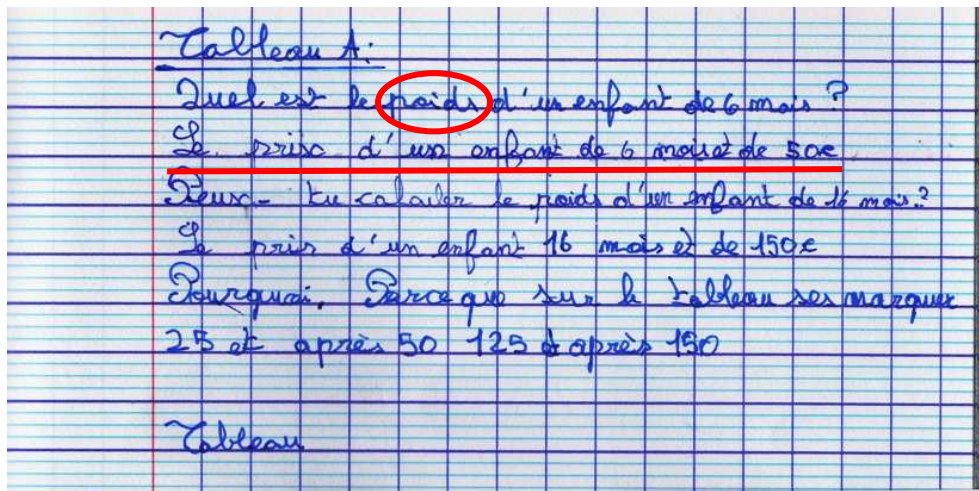 Tableau A:
Quel est le poids d'un enfant de 6 mois ?
Le prix d'un enfant de 6 mois et de 50€
Peux-tu calculer le poids d'un enfant de 16 mois ?
Le prix d'un enfant 16 mois et de 150€
Pourquoi, Parce que sur le tableau ses marquer
25 et après 50 125 et après 150
Tableau